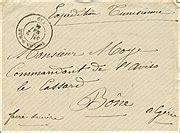 Expédition Tunisienne
Monsieur Moye
Commandant de l'aviso
le Cassard
Bône
Algérie
faire suivre